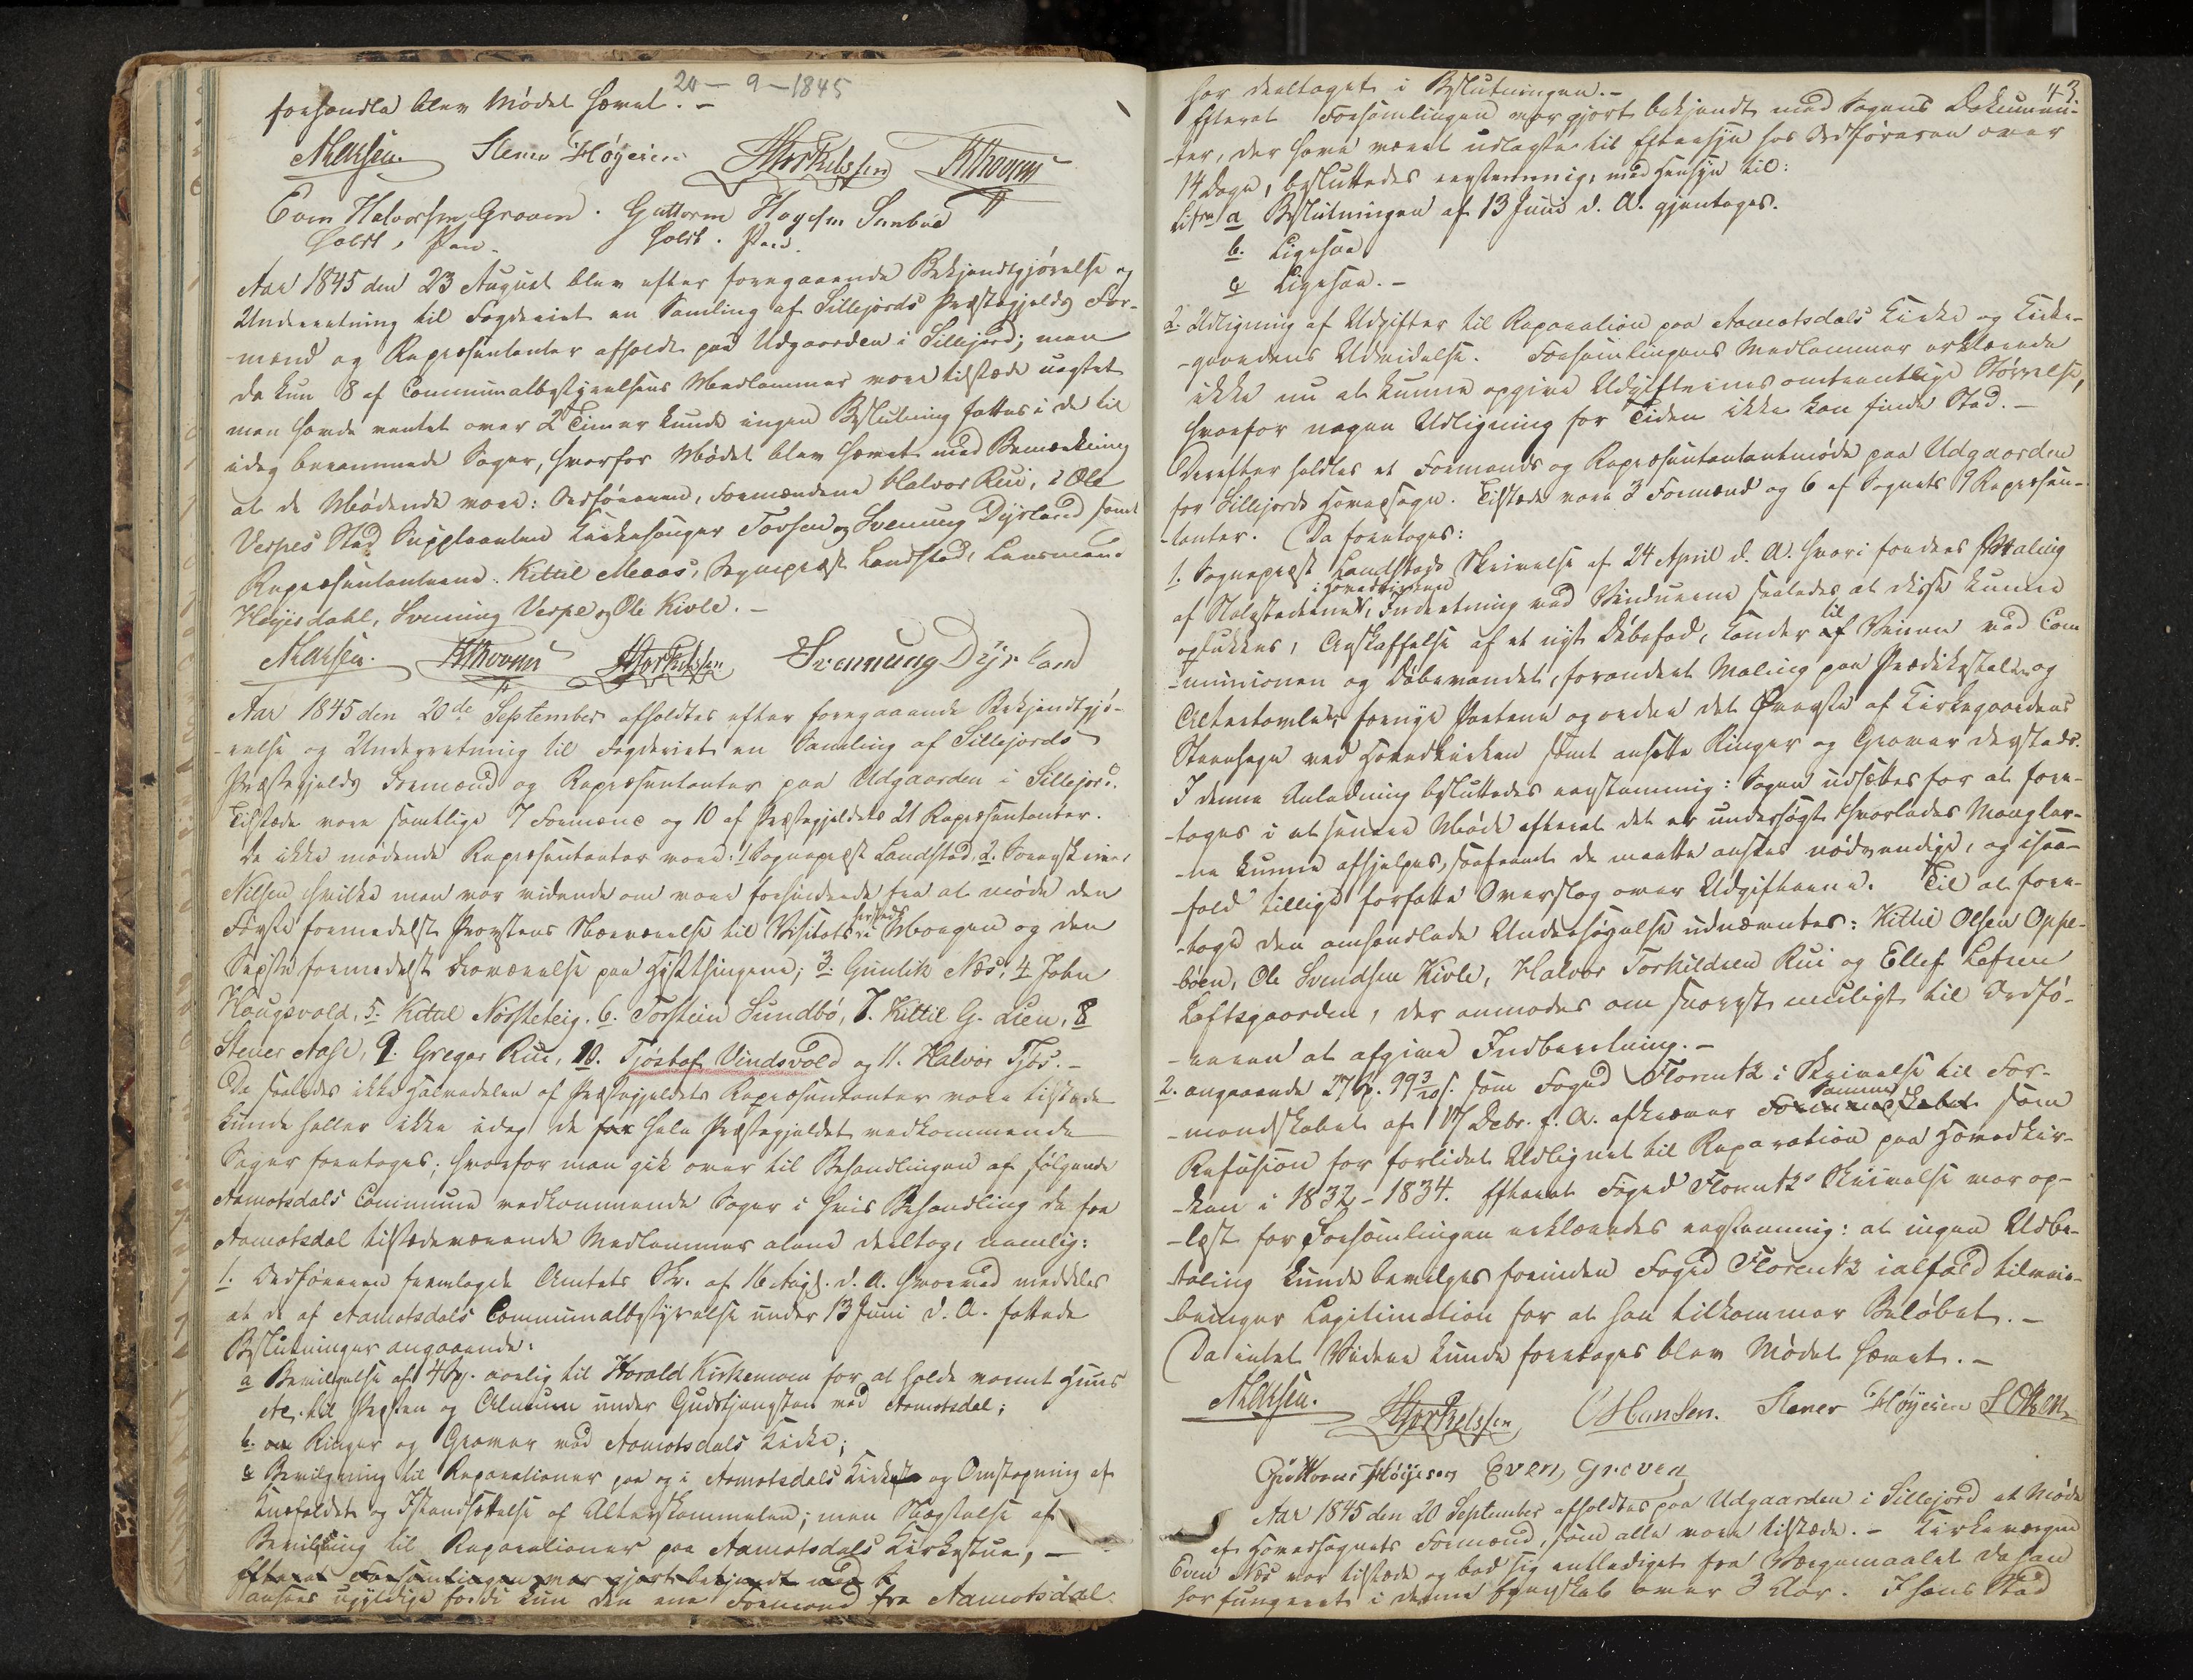 20-9-1845
forhandle blev Mødet hævet. -
Stener Høyesen HTorkelssen
Even Halvorsen Groven. Guttorm Høyesen Sunbøe
holdt. Pen. holdt. Pen.
Aar 1845 den 23 August blev efter foregaaende Bekjendtgjørelse og
Underretning til Fogderiet en Samling af Sillejords Præstegjelds For-
mænd og Repræsentanter afholdt paa Udgaarden i Sillejord; men
da kun 8 af Communalbestyrelsens Medlemmer vare tilstæde uagtet
man havde ventet over 2 Timer kunde ingen Beslutning fattes i de til
idag berammede Sager, hvorfor Mødet blev hævet med Bemærkning
at de Mødende vare: Ordføreren, Formændene Halvor Rui, i Ole
Verpes Sted Suppleanten Kirkesanger Torsen og Svenung Dyrland samt
Repræsentanterne: Kittil Meaas, Sognepræst Landstad, Lensmand
Høyesdahl, Svenung Verpe og Ole Kivle. -
HTorkelssen Svennung Dyrland
Aar 1845 den 20de September afholdtes efter foregaaende Bekjendtgjø-
relse og Underretning til Fogderiet en Samling af Sillejords
Præstegjelds Formænd og Repræsentanter paa Udgaarden i Sillejord.
Tilstæde vare samtlige 7 Formænd og 10 af Præstegjeldets 21 Repræsentanter.
De ikke mødende Repræsentanter vare: 1 Sognepræst Landstad, 2. Sorenskriver
Nilsen hvilke man var vidende om vare forhindrede fra at møde den
Første formedelst Provstens Nærværelse til Visitats i Moogen og den
Sidste formedelst Fraværelse paa Høstthingene; 3. Gunlik Næs, 4 John
Haugsvold, 5. Kittil Norsteteig. 6. Torstein Sundbø, 7. Kittil G. Lien, 8
Stener Aase, 9. Gregar Rue, 10. Tjøstof Vindsvold og 11. Halvor Tjøs. -
Da saaledes ikke Halvedelen af Præstegjeldets Repræsentanter vare tilstæde
kunde heller ikke idag de for hele Præstegjeldet vedkommende
Sager foretages; hvorfor man gik over til Behandlingen af følgende
Aamotsdals Commune vedkommende Sager i hvis Behandling de fra
Aamotsdal tilstædeværende Medlemmer alene deeltog, nemlig:
1. Ordføreren fremlagde Amtets Skr. af 16 Augs. d. A. hvorved meddeles
at de af Aamotsdals Communalbestyrelse under 13 Juni d. A. fattede
Beslutninger angaaende:
a Bevilgelse af 4 Spd. aarlig til Harald Kirkemoen for at holde varmt Huus
etc. til Præsten og Almuen under Gudstjenesten ved Aamotsdal;
b. om Ringer og Graver ved Aamotsdals Kirke;
c Bevilgning til Reparationer paa og i Aamotsdals Kirke og Omstopning af
Knæfaldet og Istandsættelse af Alterskammelen; men Nægtelse af
Bevilgning til Reparationer paa Aamotsdals Kirkestue, -
Efterat Forsamlingen var gjort bekjendt med
ansees ugyldige fordi kun den ene Formand fra Aamotsdal
43
har deeltaget i Beslutningen. -
Efterat Forsamlingen var gjort bekjendt med Sagens Dokumen-
-ter, der have været udlagte til Eftersyn hos Ordføreren over
14 Dage, besluttedes eenstemmig, med Hensyn til:
Litra a Beslutningen af 13 Juni d. A. gjentages.
b. Ligesaa
c Ligesaa. -
2. Udligning af Udgifter til Reparation paa Aamotsdals Kirke og Kirke-
-gaardens Udvidelse. Forsamlingens Medlemmer erklærede
ikke nu at kunne opgive Udgifternes omtrentlige Størrelse,
hvorfor nogen Udligning for Tiden ikke kan finde Sted. -
Derefter holdtes et Formands og Repræsentantmøde paa Udgaarden
for Sillejords Hovedsogn. Tilstæde vare 3 Formænd og 6 af Sognets 9 Repræsen-
-tanter. Da foretoges:
1. Sognepræst Landstads Skrivelse af 24 April d. A. hvori fordres Maling
i Hovedkirken
af Stolestaderne, Indretning ved Vinduerne saaledes at disse kunne
oplukkes, Anskaffelse af et nyt Døbefad, Kander til Vinen ved Com
-munionen og Døbevandet, forandret Maling paa Prædikestolen og
Altertavlen, fornye Portene og ordne det Øverste af Kirkegaardens
Steenhegn ved Hovedkirken samt ansætte Ringer og Graver dersteds.
I denne Anledning besluttedes eenstemmig: Sagen udsættes for at fore-
-tages i et senere Møde efterat det er undersøgt hvorledes Mangler-
-ne kunne afhjelpes, saafremt de maatte ansees nødvendige, og isaa-
-fald tillige forfatte Overslag over Udgifterne. Til at fore-
-tage den omhandlede Undersøgelse udnævntes: Kittil Olsen Oppe-
-bøen, Ole Svendsen Kivle, Halvor Torkildsen Rui og Ellef Lofsen
Loftsgaarden, der anmodes om snarest muligt til Ordfø-
-reren at afgive Indberetning. -
2. angaaende 27 Spd. 99 3/20 s. som Foged Florentz i Skrivelse til For-
-mandskabet af 17 Debr. f. A. afkræver Formandskabet som
Refusion for forlidet Udlignet til Reparation paa Hovedkir-
-ken i 1832-1834. Efterat Foged Florentz' Skrivelse var op-
-læst for Forsamlingen erklæredes eenstemmig: at ingen Udbe-
taling kunde bevilges forinden Foged Florentz ialfald tilveie-
bringer Legitimation for at han tilkommer Beløbet. -
Da intet Videre kunde foretages blev Mødet hævet. -
HTorkelssen OHansen. Stener Høyesen SOlsen
Guttorm Høyesen Even Groven
Aar 1845 den 20 September afholdtes paa Udgaarden i Sillejord et Møde
af Hovedsognets Formænd, som alle vare tilstæde. - Kirkeværgen
Even Næs var tilstæde og bad sig entlediget fra Værgemaalet da han
har fungeret i denne Egenskab over 3 Aar. I hans Sted